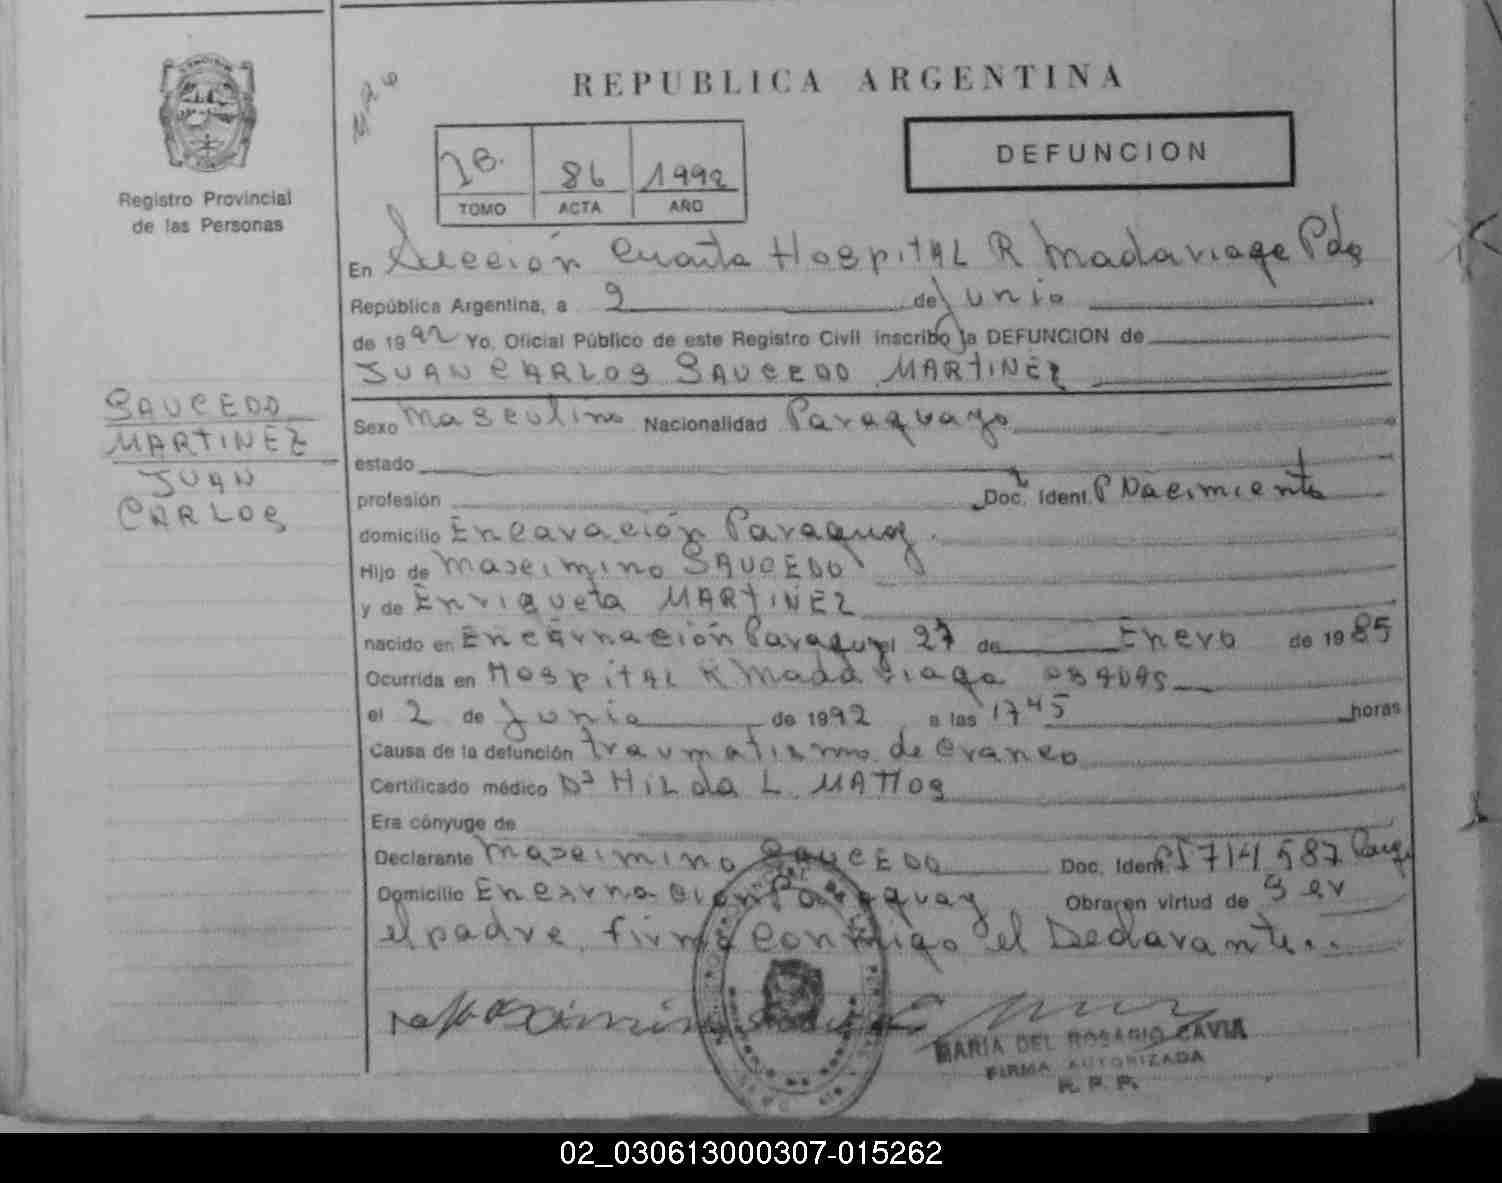 REPUBLICA ARGENTINA
Registro Provincial
de las Personas
1B. 86 1992
TOMO ACTA AÑO
DEFUNCION
En Sección Cuarta Hospital R Madariaga Pdas
República Argentina, a 2 de Junio
de 1992 Yo, Oficial Público de este Registro Civil inscribo la DEFUNCION de
JUAN CARLOS SAUCEDO MARTINEZ
SAUCEDO
MARTINEZ
JUAN
CARLOS
Sexo Masculino Nacionalidad Paraguayo
estado
profesión Doc. Ident. P Nacimiento
domicilio Encarnación Paraguay.
Hijo de Maseimino SAUCEDO
y de Enriqueta MARTINEZ
nacido en Encarnación Paraguay el 27 de Enero de 1985
Ocurrida en Hospital R Madariaga
el 2 de Junio de 1992 a las 1745 horas
Causa de la defunción traumatismo de Craneo
Certificado médico Dª Hilda L. MATTOS
Era cónyuge de
Declarante Maseimino SAUCEDO Doc. Ident. 1714587
Domicilio Encarnacion Paraguay Obra en virtud de Ser
el padre, firma conmigo el Declarante..
MARIA DEL ROSARIO CAVIA
FIRMA AUTORIZADA
R. P. P.
02_030613000307-015262